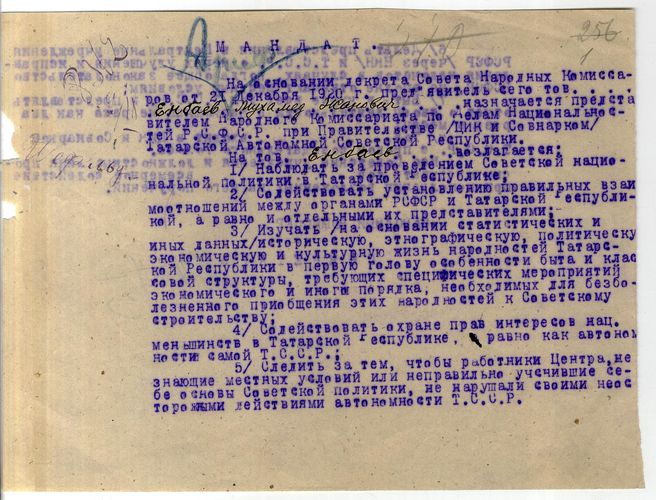 256
1
МАНДАТ.
На основании декрета Совета Народных Комисса-
ров от 21 декабря 1920 г. пред'явитель сего тов. . . .
Енбаев Мухамед . . . назначается предста
вителем Народного Комиссариата по делам Националь­нос-
тей Р.С.Ф.С.Р. при Правительстве /ЦИК и Совнарком/
Татарской Автономной Советской Республики.
На тов. Енбаев . . . возлагается:
1/ Наблюдать за проведением Советской нацио-
нальной политики в Татарской Республике;
2/ Содействовать установлению правильных взаи
моотношений между органами РСФСР и Татарской Республи-
кой, а равно и отдельными их представителями;
3/ Изучать /на основании статистических и
иных данных/историческую, этнографическую, политическу
экономическую и культурную жизнь народностей Татарс-
кой Республики в первую голову особенности быта и клас
совой структуры, требующих специфических мероприятий
экономического и иного порядка, необходимых для безбо-
лезненного приобщения этих народностей к Советскому
строительству;
4/ Содействовать охране прав интересов нац.
меньшинств в Татарской Республике, равно как автоном
ности самой Т.С.С.Р.;
5/ Следить за тем, чтобы работники Центра,не
знающие местных условий или неправильно усчившие се-
бе основы Советской политики, не нарушали своими неос
торожными действиями автономности Т.С.С.Р.